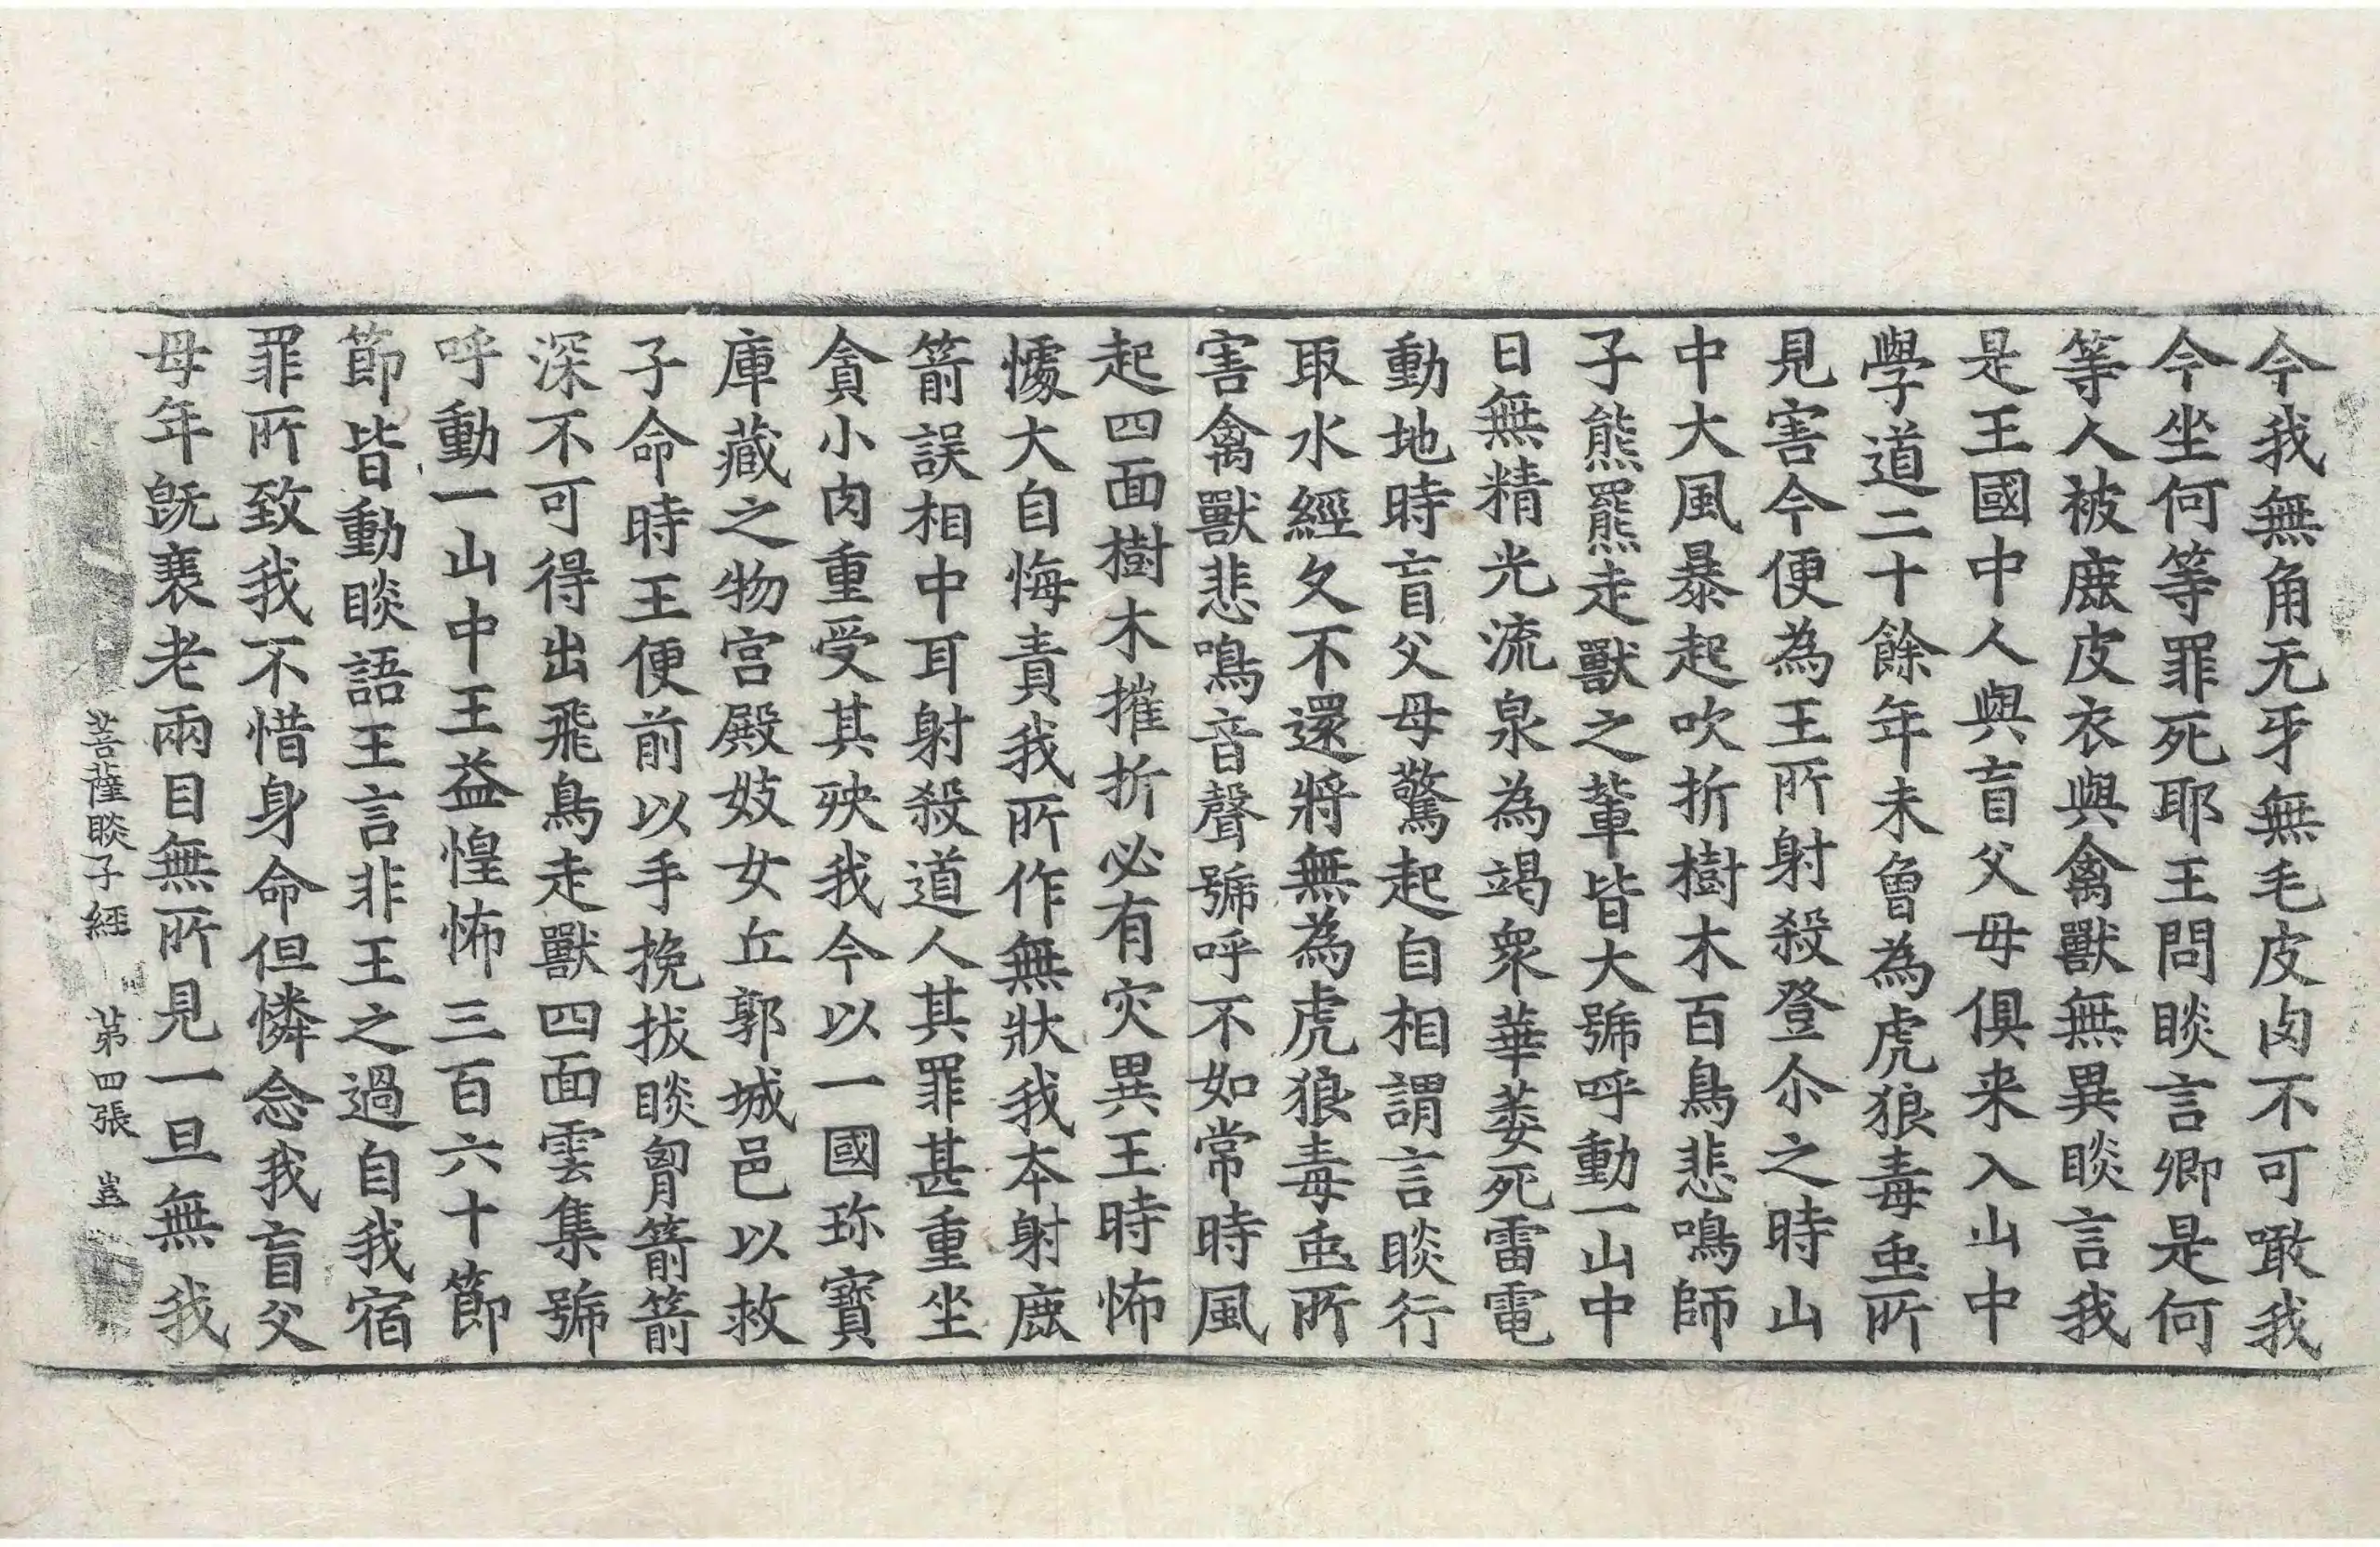 今我無角无牙無毛皮肉不可噉我
今坐何等罪死耶王問睒言卿是何
等人被鹿皮衣與禽獸無異睒言我
是王國中人與盲父母俱来入山中
學道二十餘年未曾為虎狼毒䖝所
見害今便為王所射殺登尒之時山
中大風暴起吹折樹木百鳥悲鳴師
子熊羆走獸之軰皆大號呼動一山中
日無精光流泉為竭衆華萎死雷電
動地時盲父母驚起自相謂言睒行
取水經久不還將無為虎狼毒䖝所
害禽獸悲鳴音聲號呼不如常時風
起四面樹木摧折必有灾異王時怖
懅大自悔責我所作無狀我本射鹿
箭誤相中耳射殺道人其罪甚重坐
貪小肉重受其殃我今以一國珎寶
庫藏之物宫殿妓女丘郭城邑以救
子命時王便前以手挽拔睒胷箭箭
深不可得出飛鳥走獸四面雲集號
呼動一山中王益惶怖三百六十節
節皆動睒語王言非王之過自我宿
罪所致我不惜身命但憐念我盲父
母年旣衰老兩目無所見一旦無我
菩薩睒子經 第四張 豈